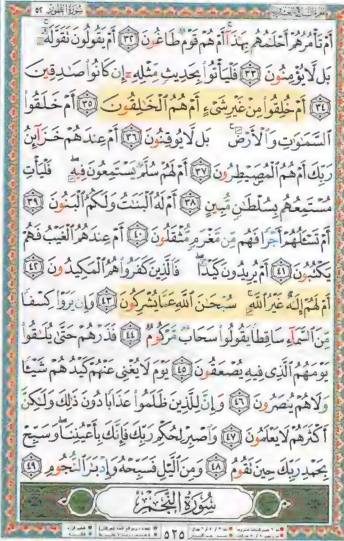 سورة الطور ٥٢
أَمْ تَأْمُرُهُمْ أَحْلَٰمُهُم بِهَٰذَآ أَمْ هُمْ قَوْمٌ طَاغُونَ ٣٢ أَمْ يَقُولُونَ تَقَوَّلَهُۥ
بَل لَّا يُؤْمِنُونَ ٣٣ فَلْيَأْتُوا۟ بِحَدِيثٍ مِّثْلِهِۦٓ إِن كَانُوا۟ صَٰدِقِينَ
٣٤ أَمْ خُلِقُوا۟ مِنْ غَيْرِ شَىْءٍ أَمْ هُمُ ٱلْخَٰلِقُونَ ٣٥ أَمْ خَلَقُوا۟
ٱلسَّمَٰوَٰتِ وَٱلْأَرْضَ بَل لَّا يُوقِنُونَ ٣٦ أَمْ عِندَهُمْ خَزَآئِنُ
رَبِّكَ أَمْ هُمُ ٱلْمُصَۣيْطِرُونَ ٣٧ أَمْ لَهُمْ سُلَّمٌ يَسْتَمِعُونَ فِيهِ فَلْيَأْتِ
مُسْتَمِعُهُم بِسُلْطَٰنٍ مُّبِينٍ ٣٨ أَمْ لَهُ ٱلْبَنَٰتُ وَلَكُمُ ٱلْبَنُونَ ٣٩
أَمْ تَسْـَٔلُهُمْ أَجْرًا فَهُم مِّن مَّغْرَمٍ مُّثْقَلُونَ ٤٠ أَمْ عِندَهُمُ ٱلْغَيْبُ فَهُمْ
يَكْتُبُونَ ٤١ أَمْ يُرِيدُونَ كَيْدًا فَٱلَّذِينَ كَفَرُوا۟ هُمُ ٱلْمَكِيدُونَ ٤٢
أَمْ لَهُمْ إِلَٰهٌ غَيْرُ ٱللَّهِ سُبْحَٰنَ ٱللَّهِ عَمَّا يُشْرِكُونَ ٤٣ وَإِن يَرَوْا۟ كِسْفًا
مِّنَ ٱلسَّمَآءِ سَاقِطًا يَقُولُوا۟ سَحَابٌ مَّرْكُومٌ ٤٤ فَذَرْهُمْ حَتَّىٰ يُلَٰقُوا۟
يَوْمَهُمُ ٱلَّذِى فِيهِ يُصْعَقُونَ ٤٥ يَوْمَ لَا يُغْنِى عَنْهُمْ كَيْدُهُمْ شَيْـًٔا
وَلَا هُمْ يُنصَرُونَ ٤٦ وَإِنَّ لِلَّذِينَ ظَلَمُوا۟ عَذَابًا دُونَ ذَٰلِكَ وَلَٰكِنَّ
أَكْثَرَهُمْ لَا يَعْلَمُونَ ٤٧ وَٱصْبِرْ لِحُكْمِ رَبِّكَ فَإِنَّكَ بِأَعْيُنِنَا وَسَبِّحْ
بِحَمْدِ رَبِّكَ حِينَ تَقُومُ ٤٨ وَمِنَ ٱلَّيْلِ فَسَبِّحْهُ وَإِدْبَٰرَ ٱلنُّجُومِ ٤٩
سُورَةُ النَّجْمِ
٥٢٥